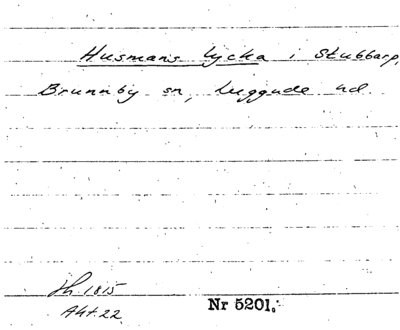 Husmans lycka i Stubbarp,
Brunnby sn, Luggude hd.
Sh. 1815
Akt. 22
Nr 5201.